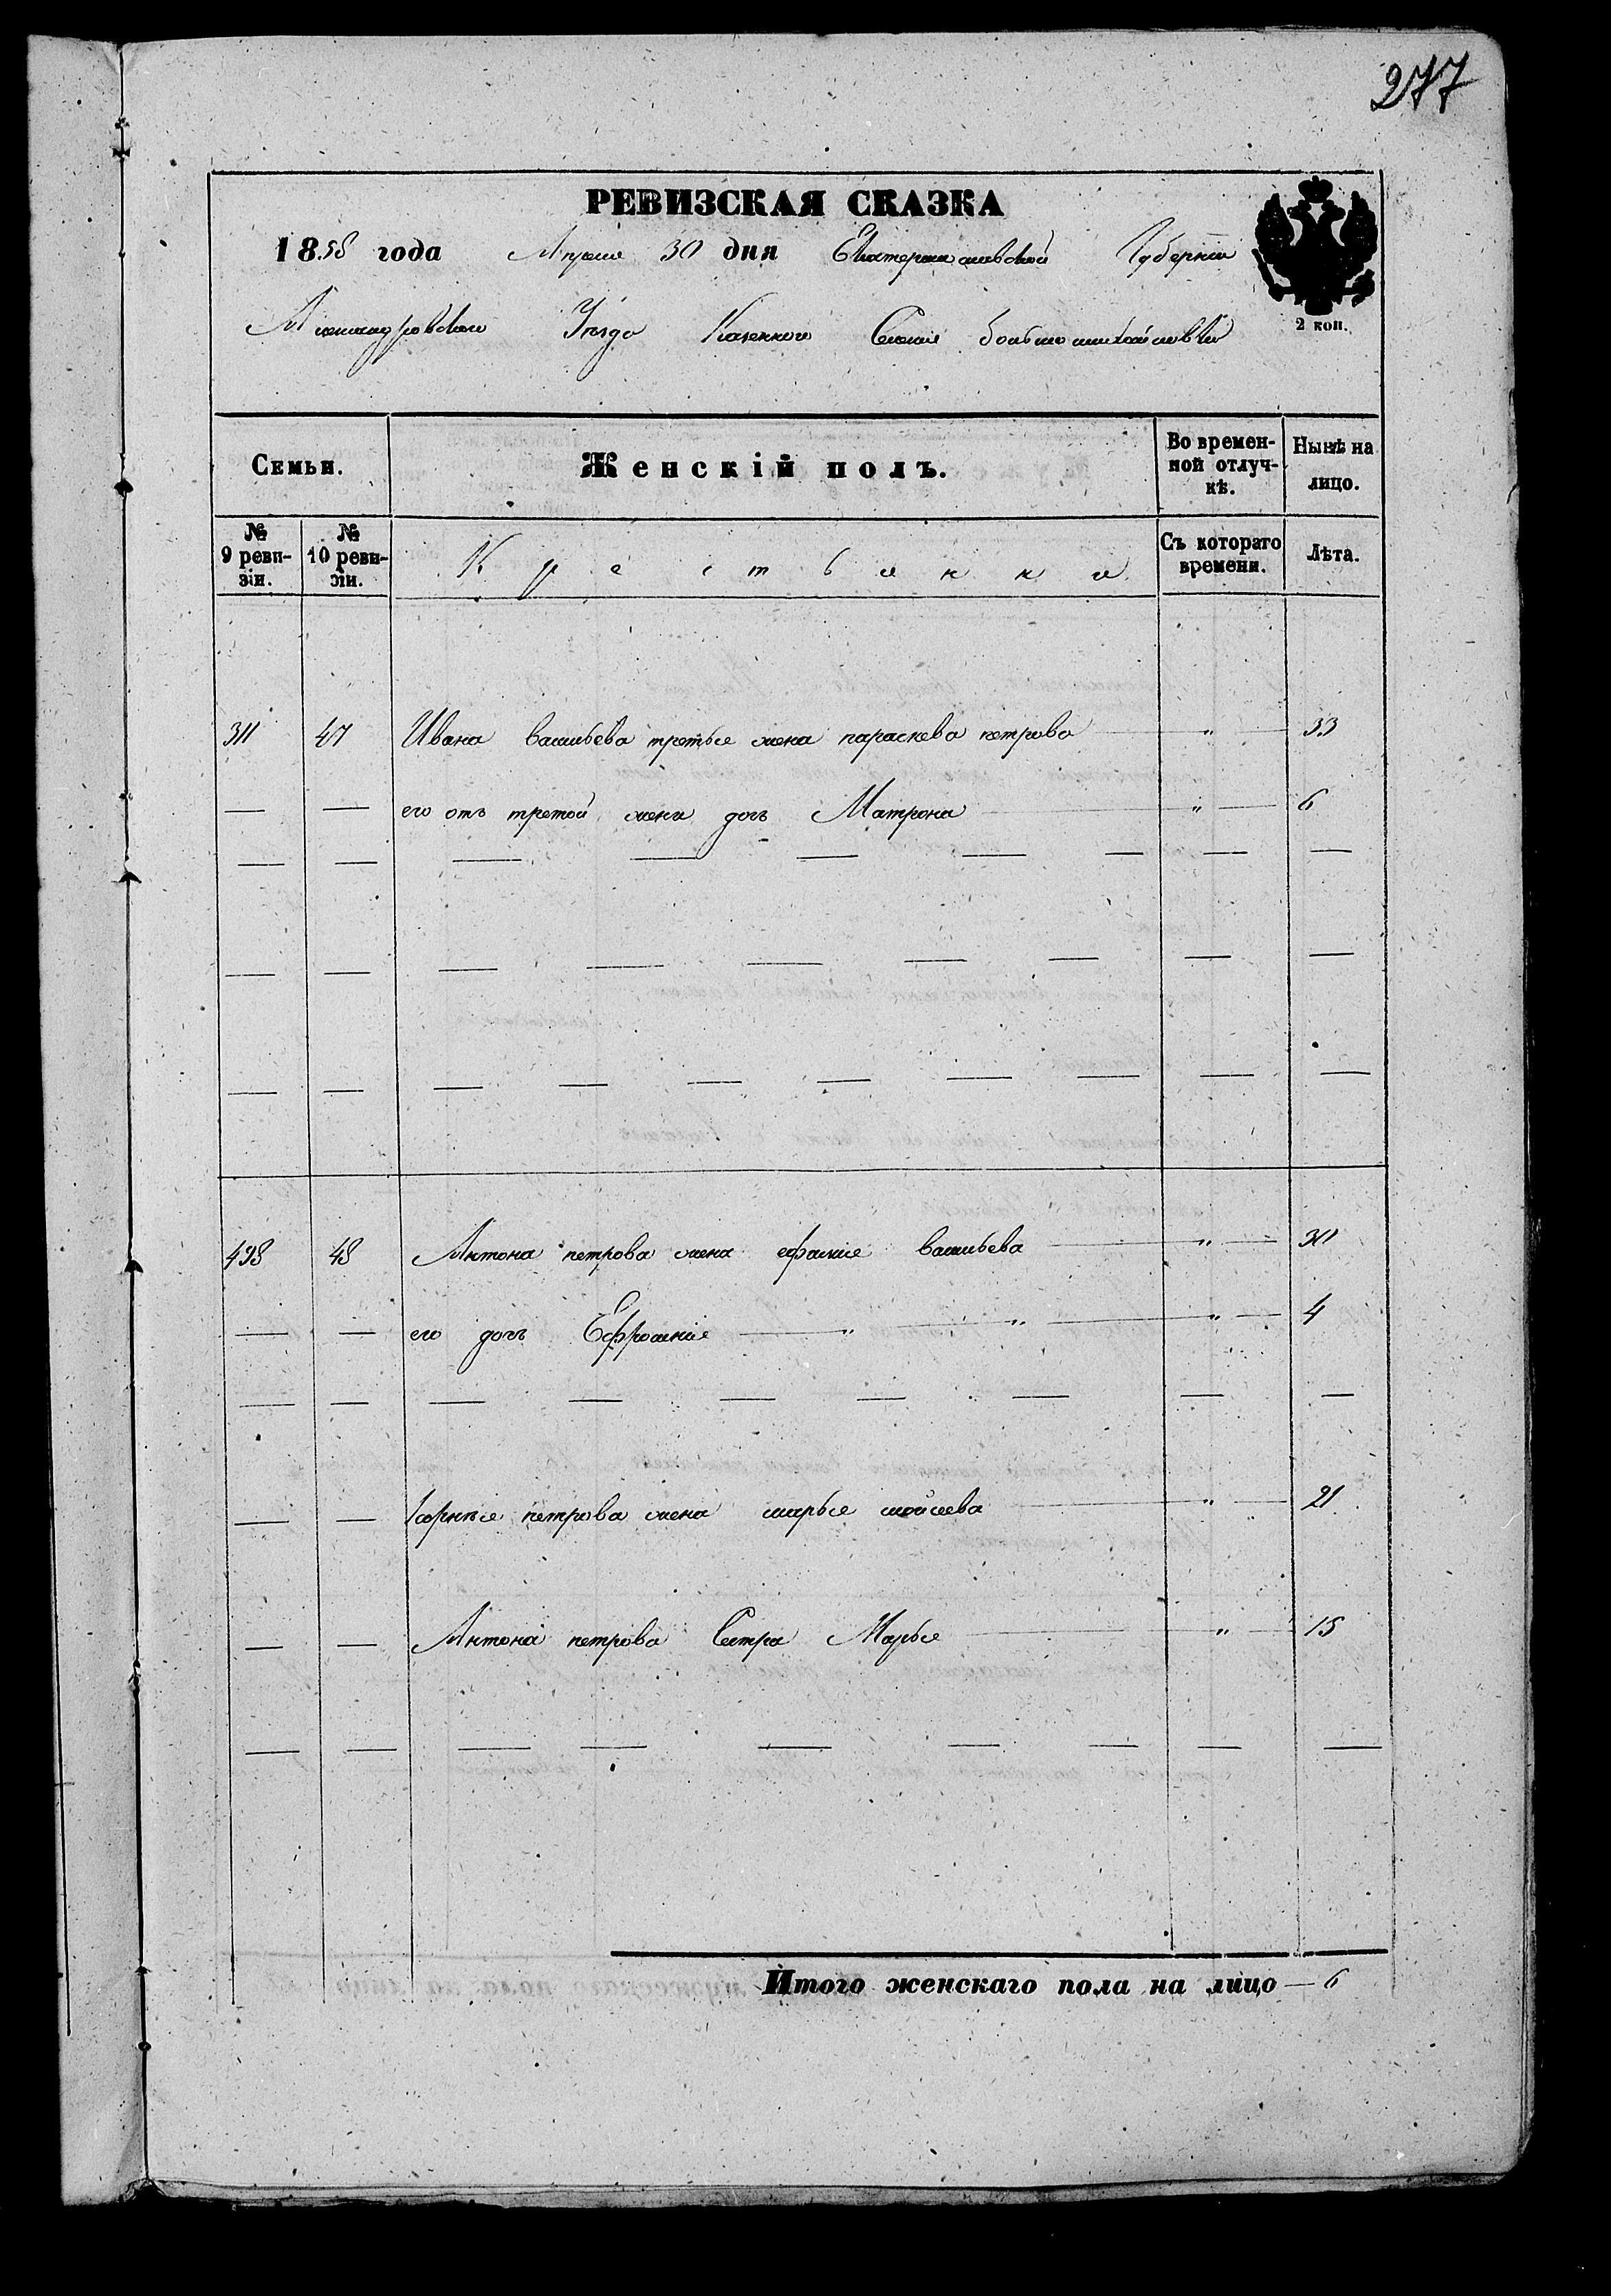 277
РЕВИЗСКАЯ СКАЗКА
1858 года Апреля 30 дня Екатеринославской Губернiи
2 коп.
Александровского Уѣзда Казенного Селенiя большомихайловки
Семьи. Женскiй полъ. Во времен-ной отлуч-кѣ. Нынѣ на лицо.
№ 9 реви-зiи. № 10 реви-зiи. Крестьянки Съ котораго времени. Лѣта.
311 47 Ивана Васильева третья жена параскева петрова " 33
— — его отъ третой жены дочь Матрона " 6
498 48 Антона петрова жена васильева " 30
— — его дочь Ефросинiя " " " 4
— — Корнѣя петрова жена марья мойсеева " 21
— — Антона петрова Сестра Марья " 15
Итого женскаго пола на лицо — 6